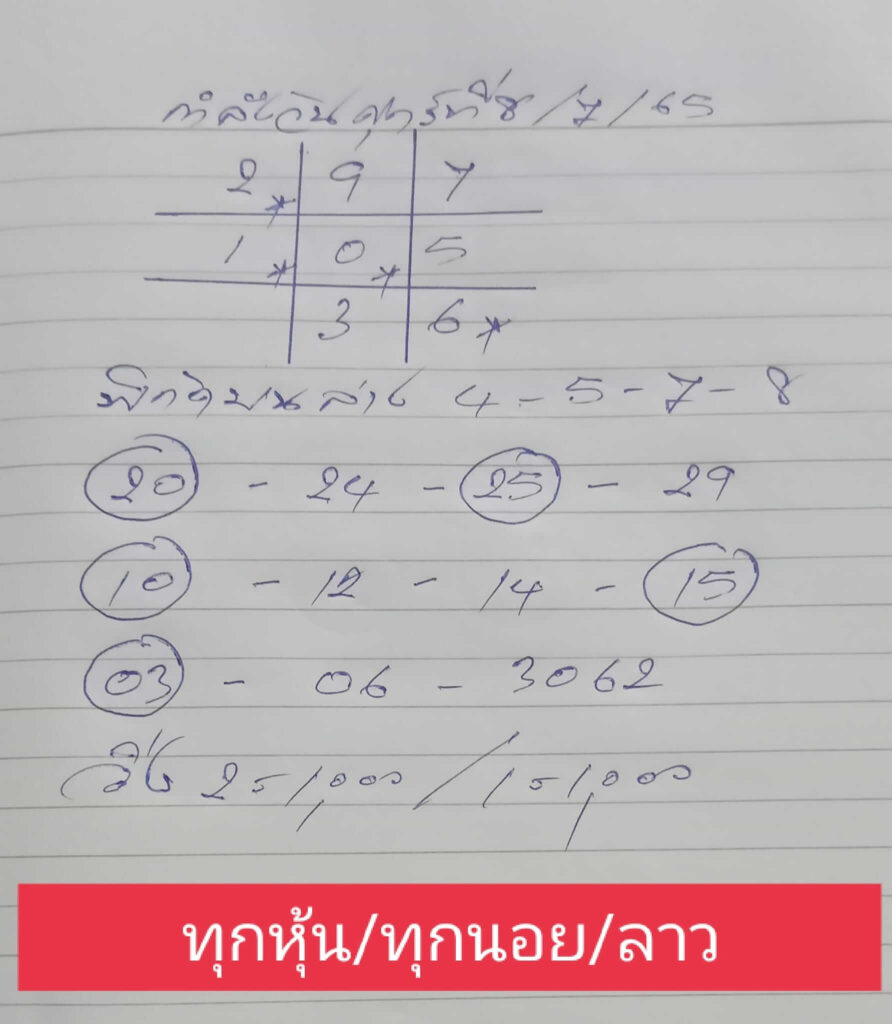 กำลังวันศุกร์ที่8/7/65
2* 9 7
1* 0* 5
3 6*
พิกัดบนล่าง 4-5-7-8
20 - 24 - 25 - 29
10 - 12 - 14 - 15
03 - 06 - 3062
วิ่ง 2=1,000/1=1,000
ทุกหุ้น/ทุกนอย/ลาว